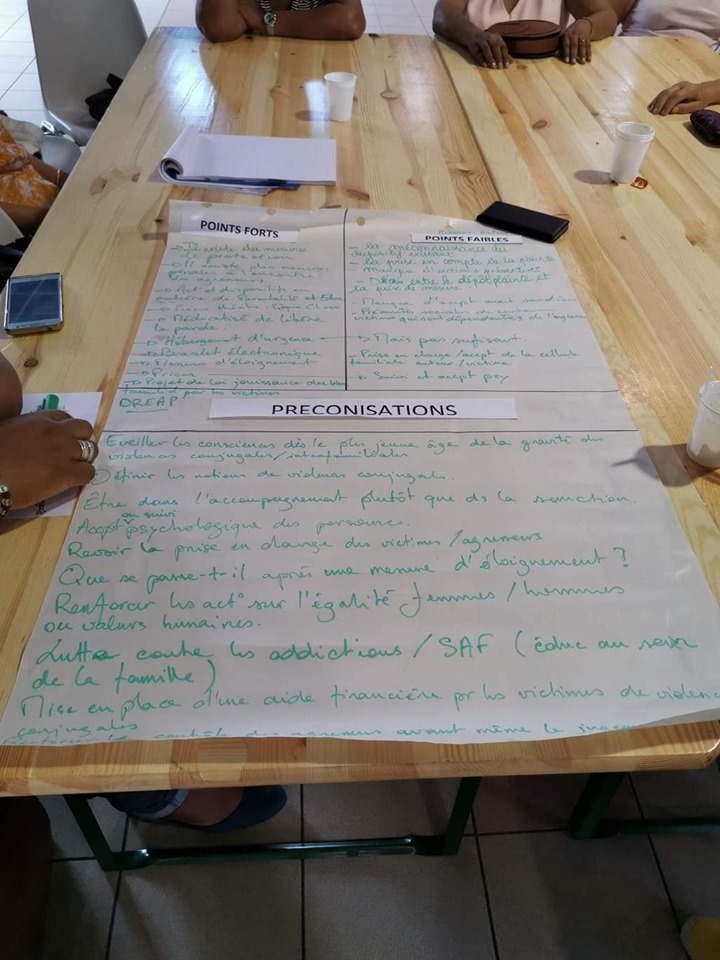 POINTS FORTS
→ Il existe des mesures
de protection
→ Il existe plus mesures
pénales à l'encontre
des agresseurs
→ Action dispositifs en
matière de Parentalité et Educ
→ Médiatisé de libère
la parole.
→ Hébergement d'urgence
→ Bracelet électronique
→ Mesures d'éloignement
→ Prison
→ Projet de loi jouissance du bien
familial par les victimes
DREAP
POINTS FAIBLES
- La méconnaissance du
dispositif existant
- La prise en compte de la plainte
manque d'actions préventives
- Délais entre le dépôt plainte et
la prise de mesure
- Manque d'acept avant
- sociales de
victimes qui sont dépendantes de l'agresseur
→ Mais pas suffisant.
- Prise en charge / acept de la cellule
familiale auteur / victime
→ Suivi et acept psy.
PRECONISATIONS
Eveiller les consciences dès le plus jeune âge de la gravité des
violences conjugales / intrafamiliales
Définir les notions de violences conjugales.
Être dans l'accompagnement plutôt que ds la sanction.
ou suivi
Accpt psychologique des personnes.
Revoir la prise en charge des victimes / agresseurs
Que se passe-t-il après une mesure d'éloignement ?
Renforcer les act° sur l'égalité femmes / hommes
ou valeurs humaines.
Lutte contre les addictions / SAF (éduc au sein
de la famille)
Mise en place d'une aide financière pr les victimes de violence
conjugales
contrôle des agresseurs avant même le